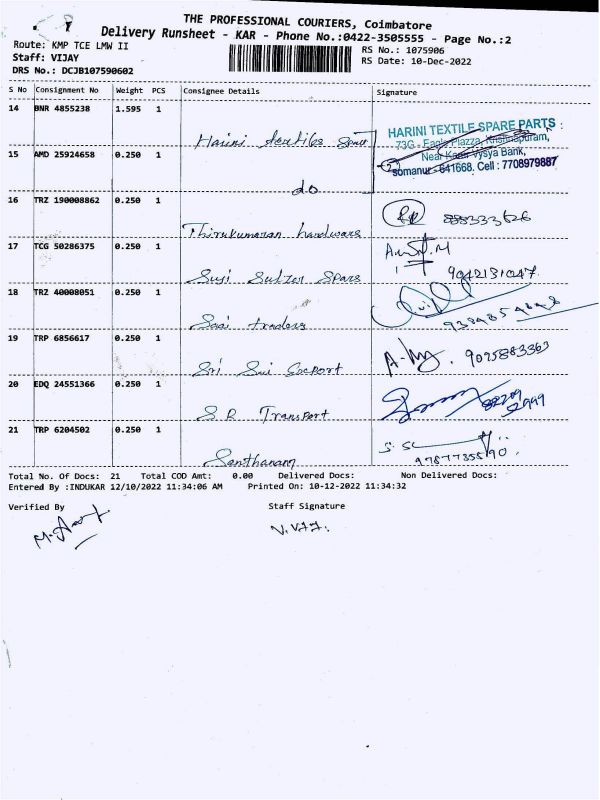 THE PROFESSIONAL COURIERS, Coimbatore
Delivery Runsheet - KAR - Phone No.:0422-3505555 - Page No.:2
Route: KMP TCE LMW II
RS No.: 1075906
Staff: VIJAY
RS Date: 10-Dec-2022
DRS No.: DCJB107590602
S No Consignment No Weight PCS Consignee Details Signature
14 BNR 4855238 1.595 1
Harini textiles
HARINI TEXTILE SPARE PARTS :
73G - Eagle Plazza, Krishnapuram,
Near Karur Vysya Bank,
somanur - 641668. Cell : 7708979887
15 AMD 25924658 0.250 1
do
16 TRZ 190008862 0.250 1
Thirukumaran hardwars
17 TCG 50286375 0.250 1
Suji Sulzer Spars
18 TRZ 40008051 0.250 1
Saai traders
19 TRP 6856617 0.250 1
Sri Sai
9095883363
20 EDQ 24551366 0.250 1
S R Transport
21 TRP 6204502 0.250 1
Santhanam
Total No. Of Docs: 21 Total COD Amt: 0.00 Delivered Docs: Non Delivered Docs:
Entered By :INDUKAR 12/10/2022 11:34:06 AM Printed On: 10-12-2022 11:34:32
Verified By Staff Signature